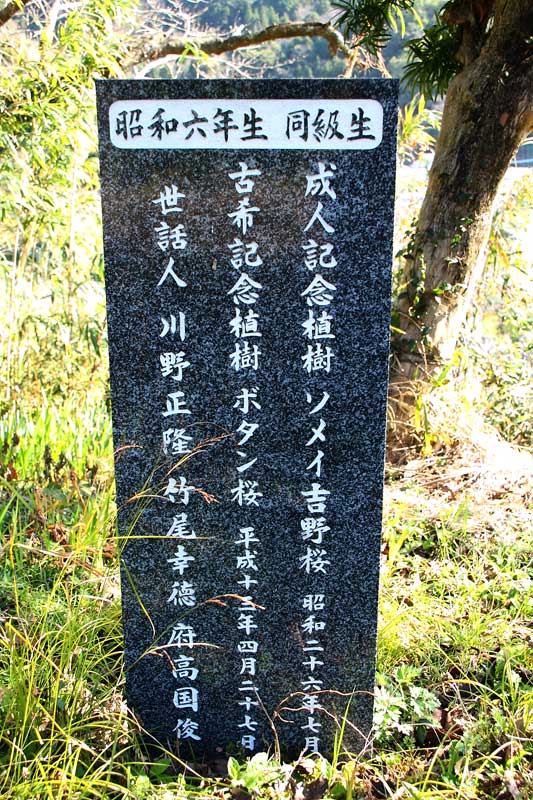 昭和六年生 同級生
成人記念植樹 ソメイ吉野桜 昭和二十六年七月
古希記念植樹 ボタン桜 平成十三年四月二十七日
世話人 川野正隆 竹尾幸徳 府高国俊